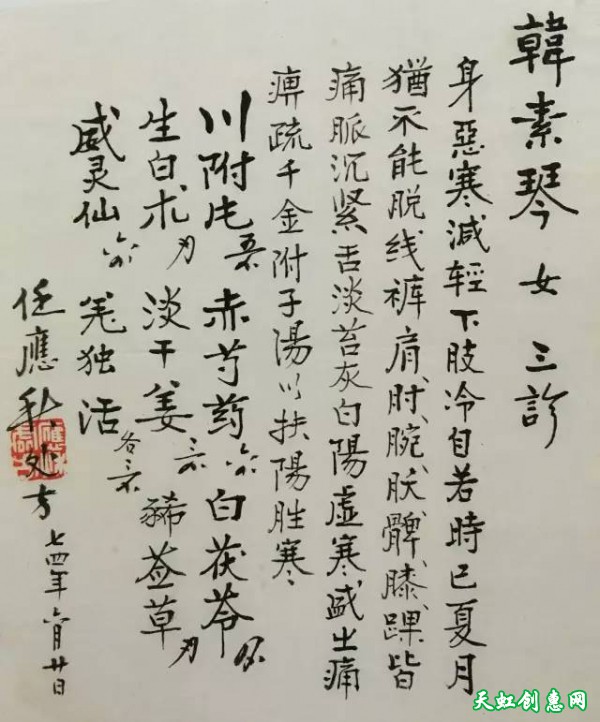 韓素琴 女 三診
身惡寒減輕下肢冷自若時已夏月
猶不能脱线裤肩、肘、腕、肷、髀、膝、踝皆
痛脈沉緊舌淡苔灰白陽虛寒盛之痛
痹疏千金附子湯以扶陽胜寒
川附片 赤芍药 白茯苓
生白朮 淡干姜 豨莶草
威灵仙 羌独活
任應秋处方 七四年六月廿日
天虹创惠网